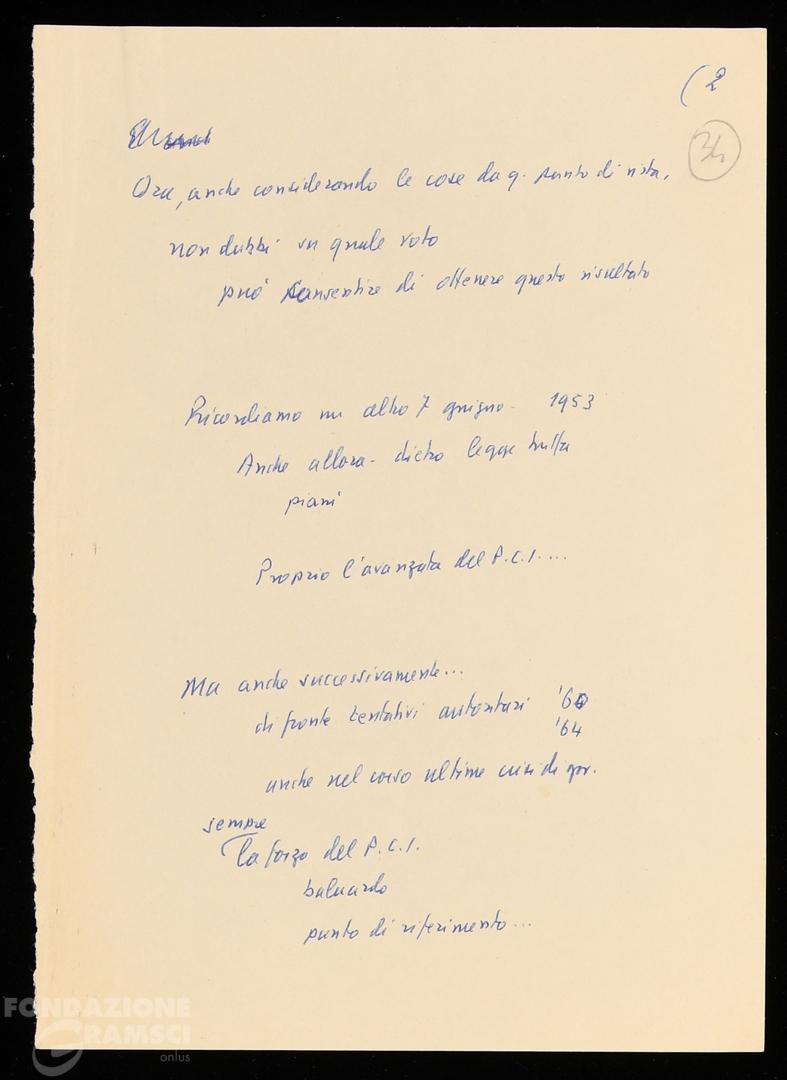 (2
34
Ora, anche considerando le cose da q. punto di vista,
non dubbi su quale voto
può consentire di ottenere questo risultato
Ricordiamo un altro 7 giugno - 1953
Anche allora - dietro legge truffa
piani
Proprio l'avanzata del P.C.I....
Ma anche successivamente...
di fronte tentativi autoritari '60
'64
anche nel corso ultime crisi di gov.
sempre
la forza del P.C.I.
baluardo
punto di riferimento...
FONDAZIONE
GRAMSCI
onlus